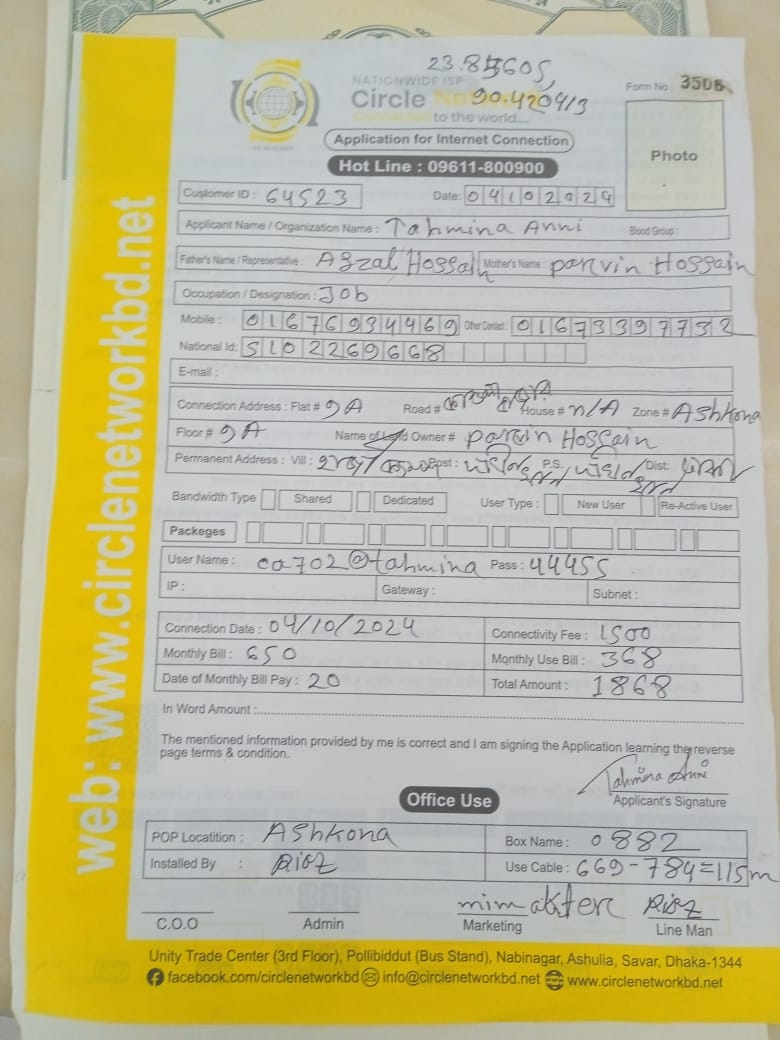 23.85605,
90.420913
NATIONWIDE ISP
Circle
to the world....
Form No : 3506
Application for Internet Connection
Hot Line : 09611-800900
Photo
Customer ID : 64523 Date: 04102024
Applicant Name / Organization Name : Tahmina Anni Blood Group :
Father's Name / Representative : Afzal Hossain Mother's Name : parvin Hossain
Occupation / Designation : Job
Mobile : 01676934469 Other Contact: 01673397732
National Id: 5102269668
E-mail :
Connection Address : Flat # 9A Road # House # n/A Zone # Ashkona
Floor # 9A Name of Land Owner # parvin Hossain
Permanent Address : Vill : Post : P.S. Dist:
Bandwidth Type Shared Dedicated User Type : New User Re-Active User
Packeges
User Name : ca702@tahmina Pass : 44455
IP : Gateway : Subnet :
Connection Date : 04/10/2024 Connectivity Fee : 1500
Monthly Bill : 650 Monthly Use Bill : 368
Date of Monthly Bill Pay : 20 Total Amount : 1868
In Word Amount :
The mentioned information provided by me is correct and I am signing the Application learning the reverse
page terms & condition.
Tahmina Anni
Applicant's Signature
Office Use
POP Locatition : Ashkona Box Name : 0882
Installed By : Use Cable : 669-784=115m
mim akter
C.O.O Admin Marketing Line Man
Unity Trade Center (3rd Floor), Pollibiddut (Bus Stand), Nabinagar, Ashulia, Savar, Dhaka-1344
facebook.com/circlenetworkbd info@circlenetworkbd.net www.circlenetworkbd.net
web: www.circlenetworkbd.net